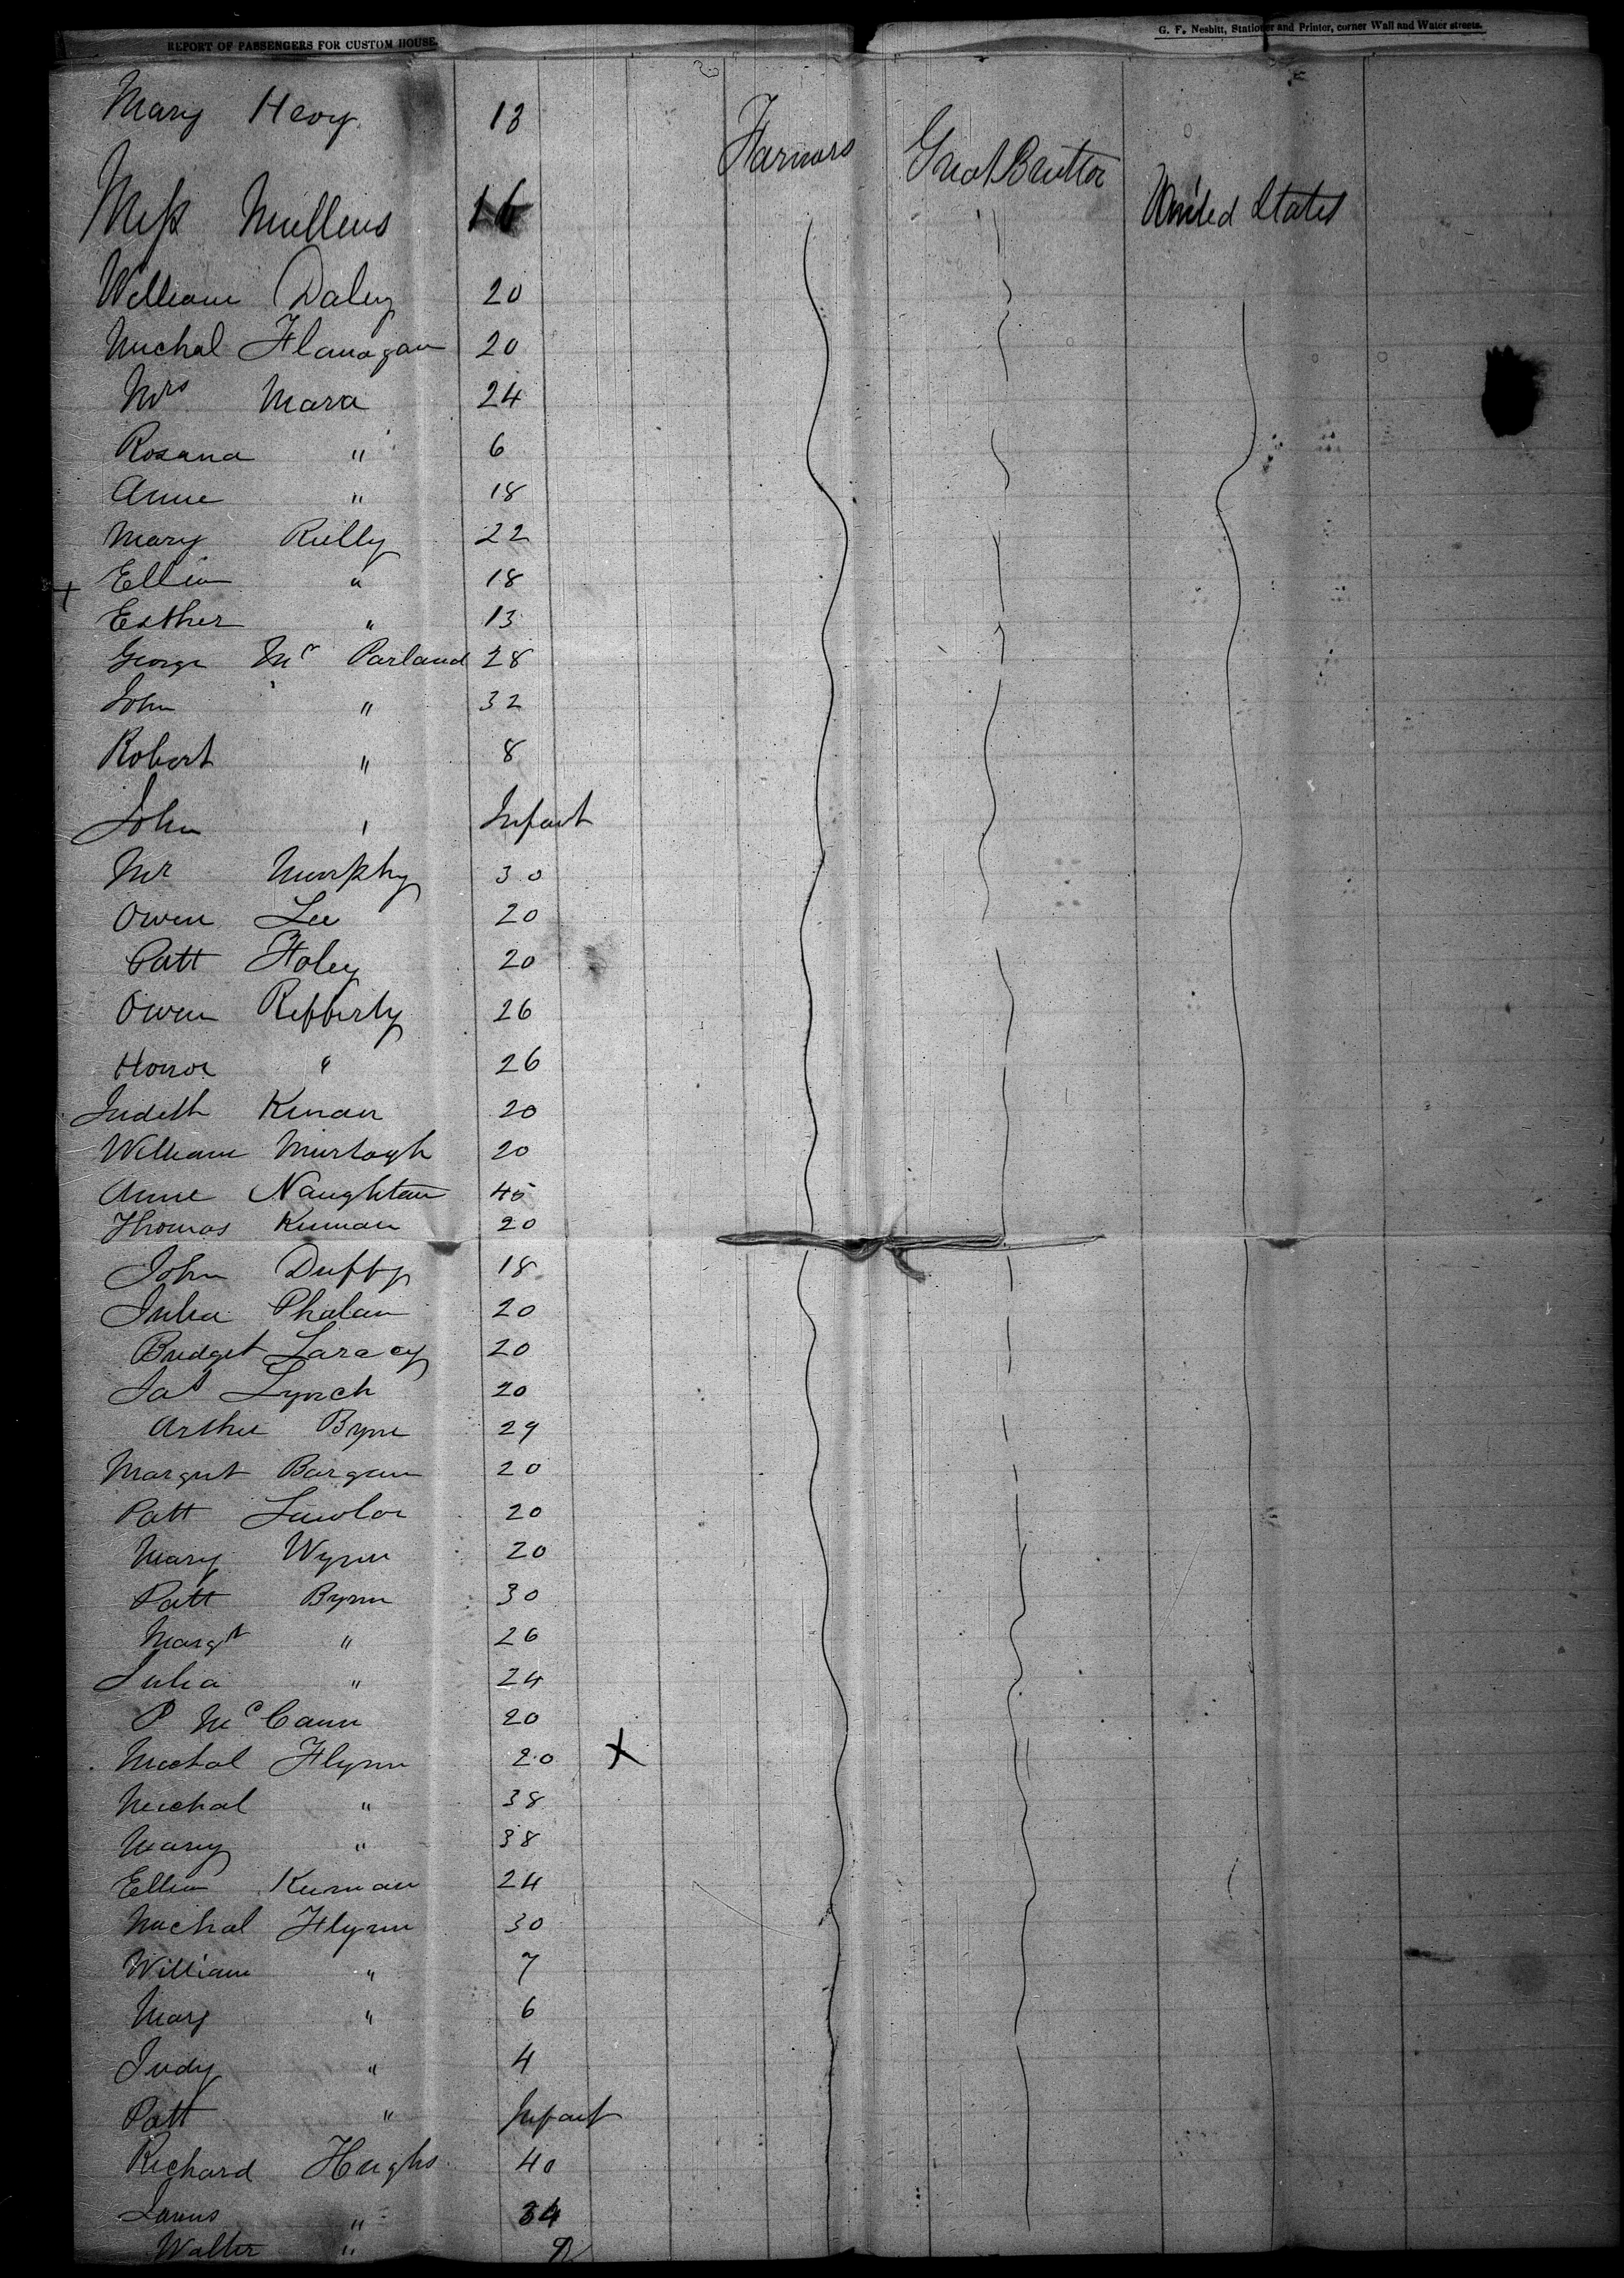 REPORT OF PASSENGERS FOR CUSTOM HOUSE.
G. F. Nesbitt, Stationer and Printer, corner Wall and Water streets.
Mary Hevy 13 Farmers Great Brittan
Miss Mullens 16 United States
William Daley 20
Michal Flanagan 20
Mrs Mara 24
Rosana " 6
Anne " 18
Mary Rielly 22
+ Ellin " 18
Esther " 13
George Mc Parland 28
John " 32
Robert " 8
John " Infant
Mr Murphy 30
Owen Lee 20
Patt Foley 20
Owen Refferty 26
Honor " 26
Judith Kinan 20
William Murtagh 20
Anne Naughtan 45
Thomas Kiernan 20
John Duffy 18
Julia Phalan 20
Bridget Laracy 20
Jas Lynch 20
Arthur Byrn 29
Margret Bargan 20
Patt Lawlor 20
Mary Wynn 20
Patt Byrn 30
Margt " 26
Julia " 24
P McCann 20
Michal Flynn 20 X
Michal " 38
Mary " 38
Ellen Kiernan 24
Michal Flynn 30
William " 7
Mary " 6
Judy " 4
Patt " Infant
Richard Hughs 40
" 34
Walter " 9